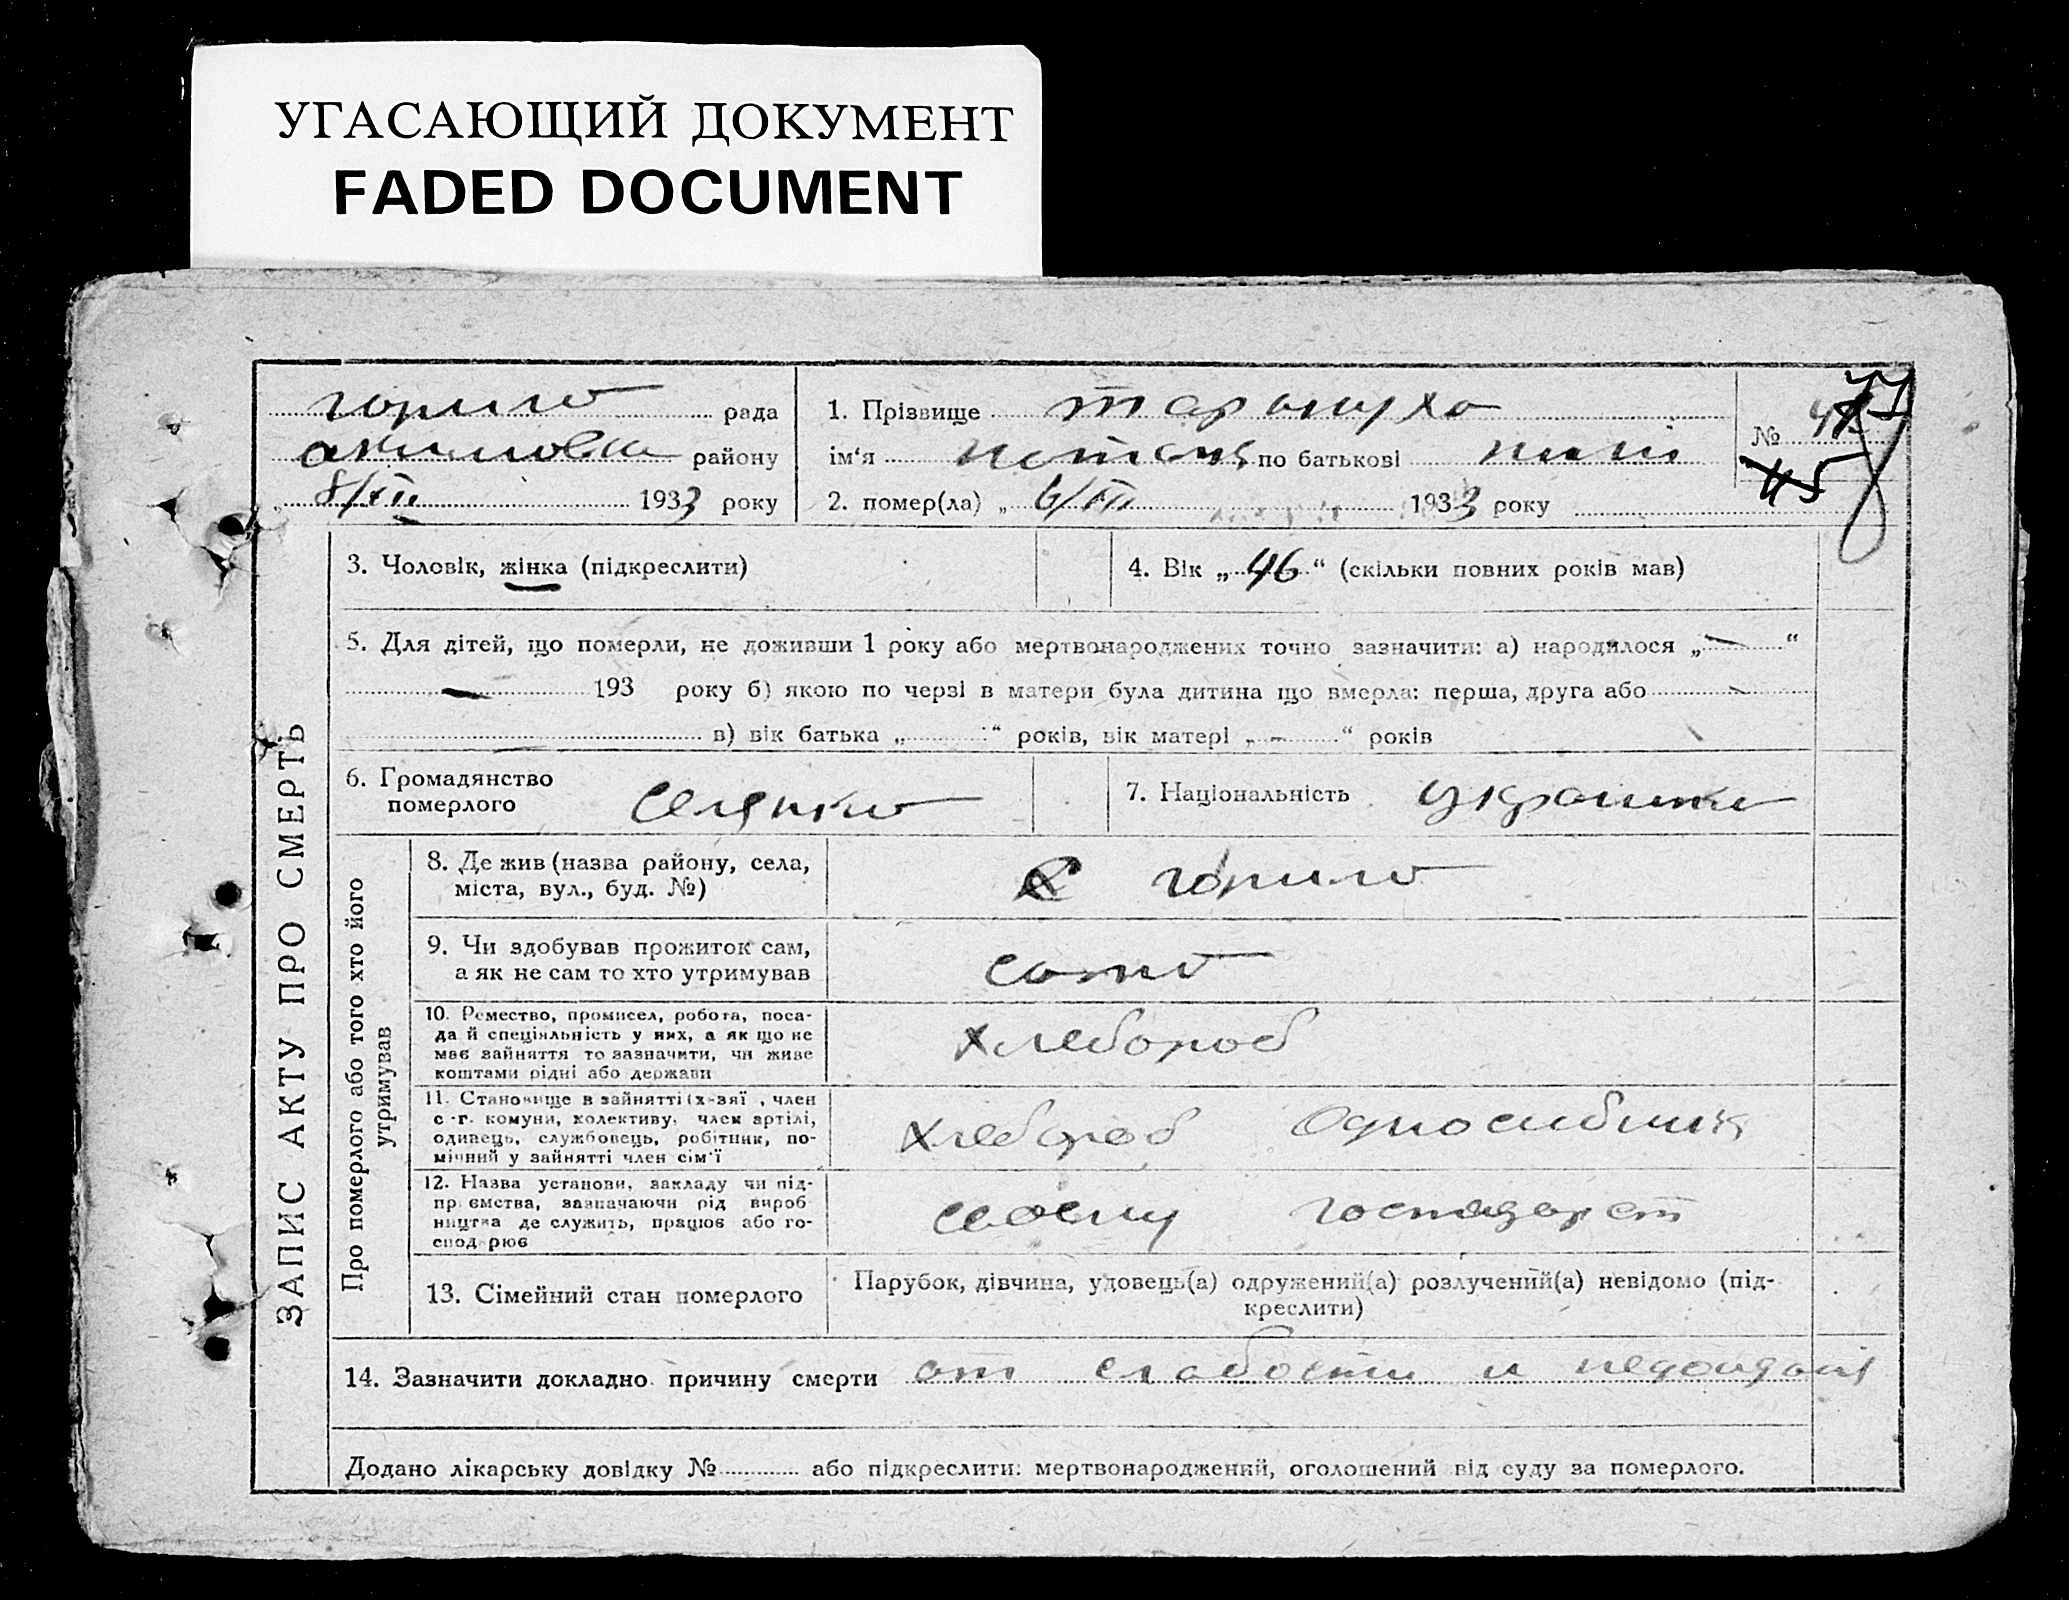 УГАСАЮЩИЙ ДОКУМЕНТ
FADED DOCUMENT
рада
району
8/III 1933 року
1. Прізвище Тарануха
ім'я по батькові
2. помер(ла) „ 6/III 1933 року
№
45
ЗАПИС АКТУ ПРО СМЕРТЬ
3. Чоловік, жінка (підкреслити)
4. Вік „ 46 “ (скільки повних років мав)
5. Для дітей, що померли, не доживши 1 року або мертвонароджених точно зазначити: а) народилося „ — “
— 193 року б) якою по черзі в матери була дитина що вмерла: перша, друга або —
в) вік батька „ “ років, вік матері „ - “ років
6. Громадянство
померлого
селянка
7. Національність украинка
Про померлого або того хто його
утримував
8. Де жив (назва району, села,
міста, вул., буд. №)
9. Чи здобував прожиток сам,
а як не сам то хто утримував
сама
10. Ремество, промисел, робота, поса-
да й спеціяльність у них, а як що не
має зайняття то зазначити, чи живе
коштами рідні або держави
хлебороб
11. Становище в зайнятті (х-зяї , член
с-г. комуни, колективу, член артілі,
одинець, службовець, робітник, по-
мічний у зайнятті член сім'ї
хлебороб односибник
12. Назва установи, закладу чи під-
приємства, зазначаючи рід вироб-
ництва де служить, працює або го-
сподарює
своему господарст
13. Сімейний стан померлого
Парубок, дівчина, удовець(а) одружений(а) розлучений(а) невідомо (під-
креслити)
14. Зазначити докладно причину смерти от слабости и недоидания
Додано лікарську довідку № або підкреслити: мертвонароджений, оголошений від суду за померлого.